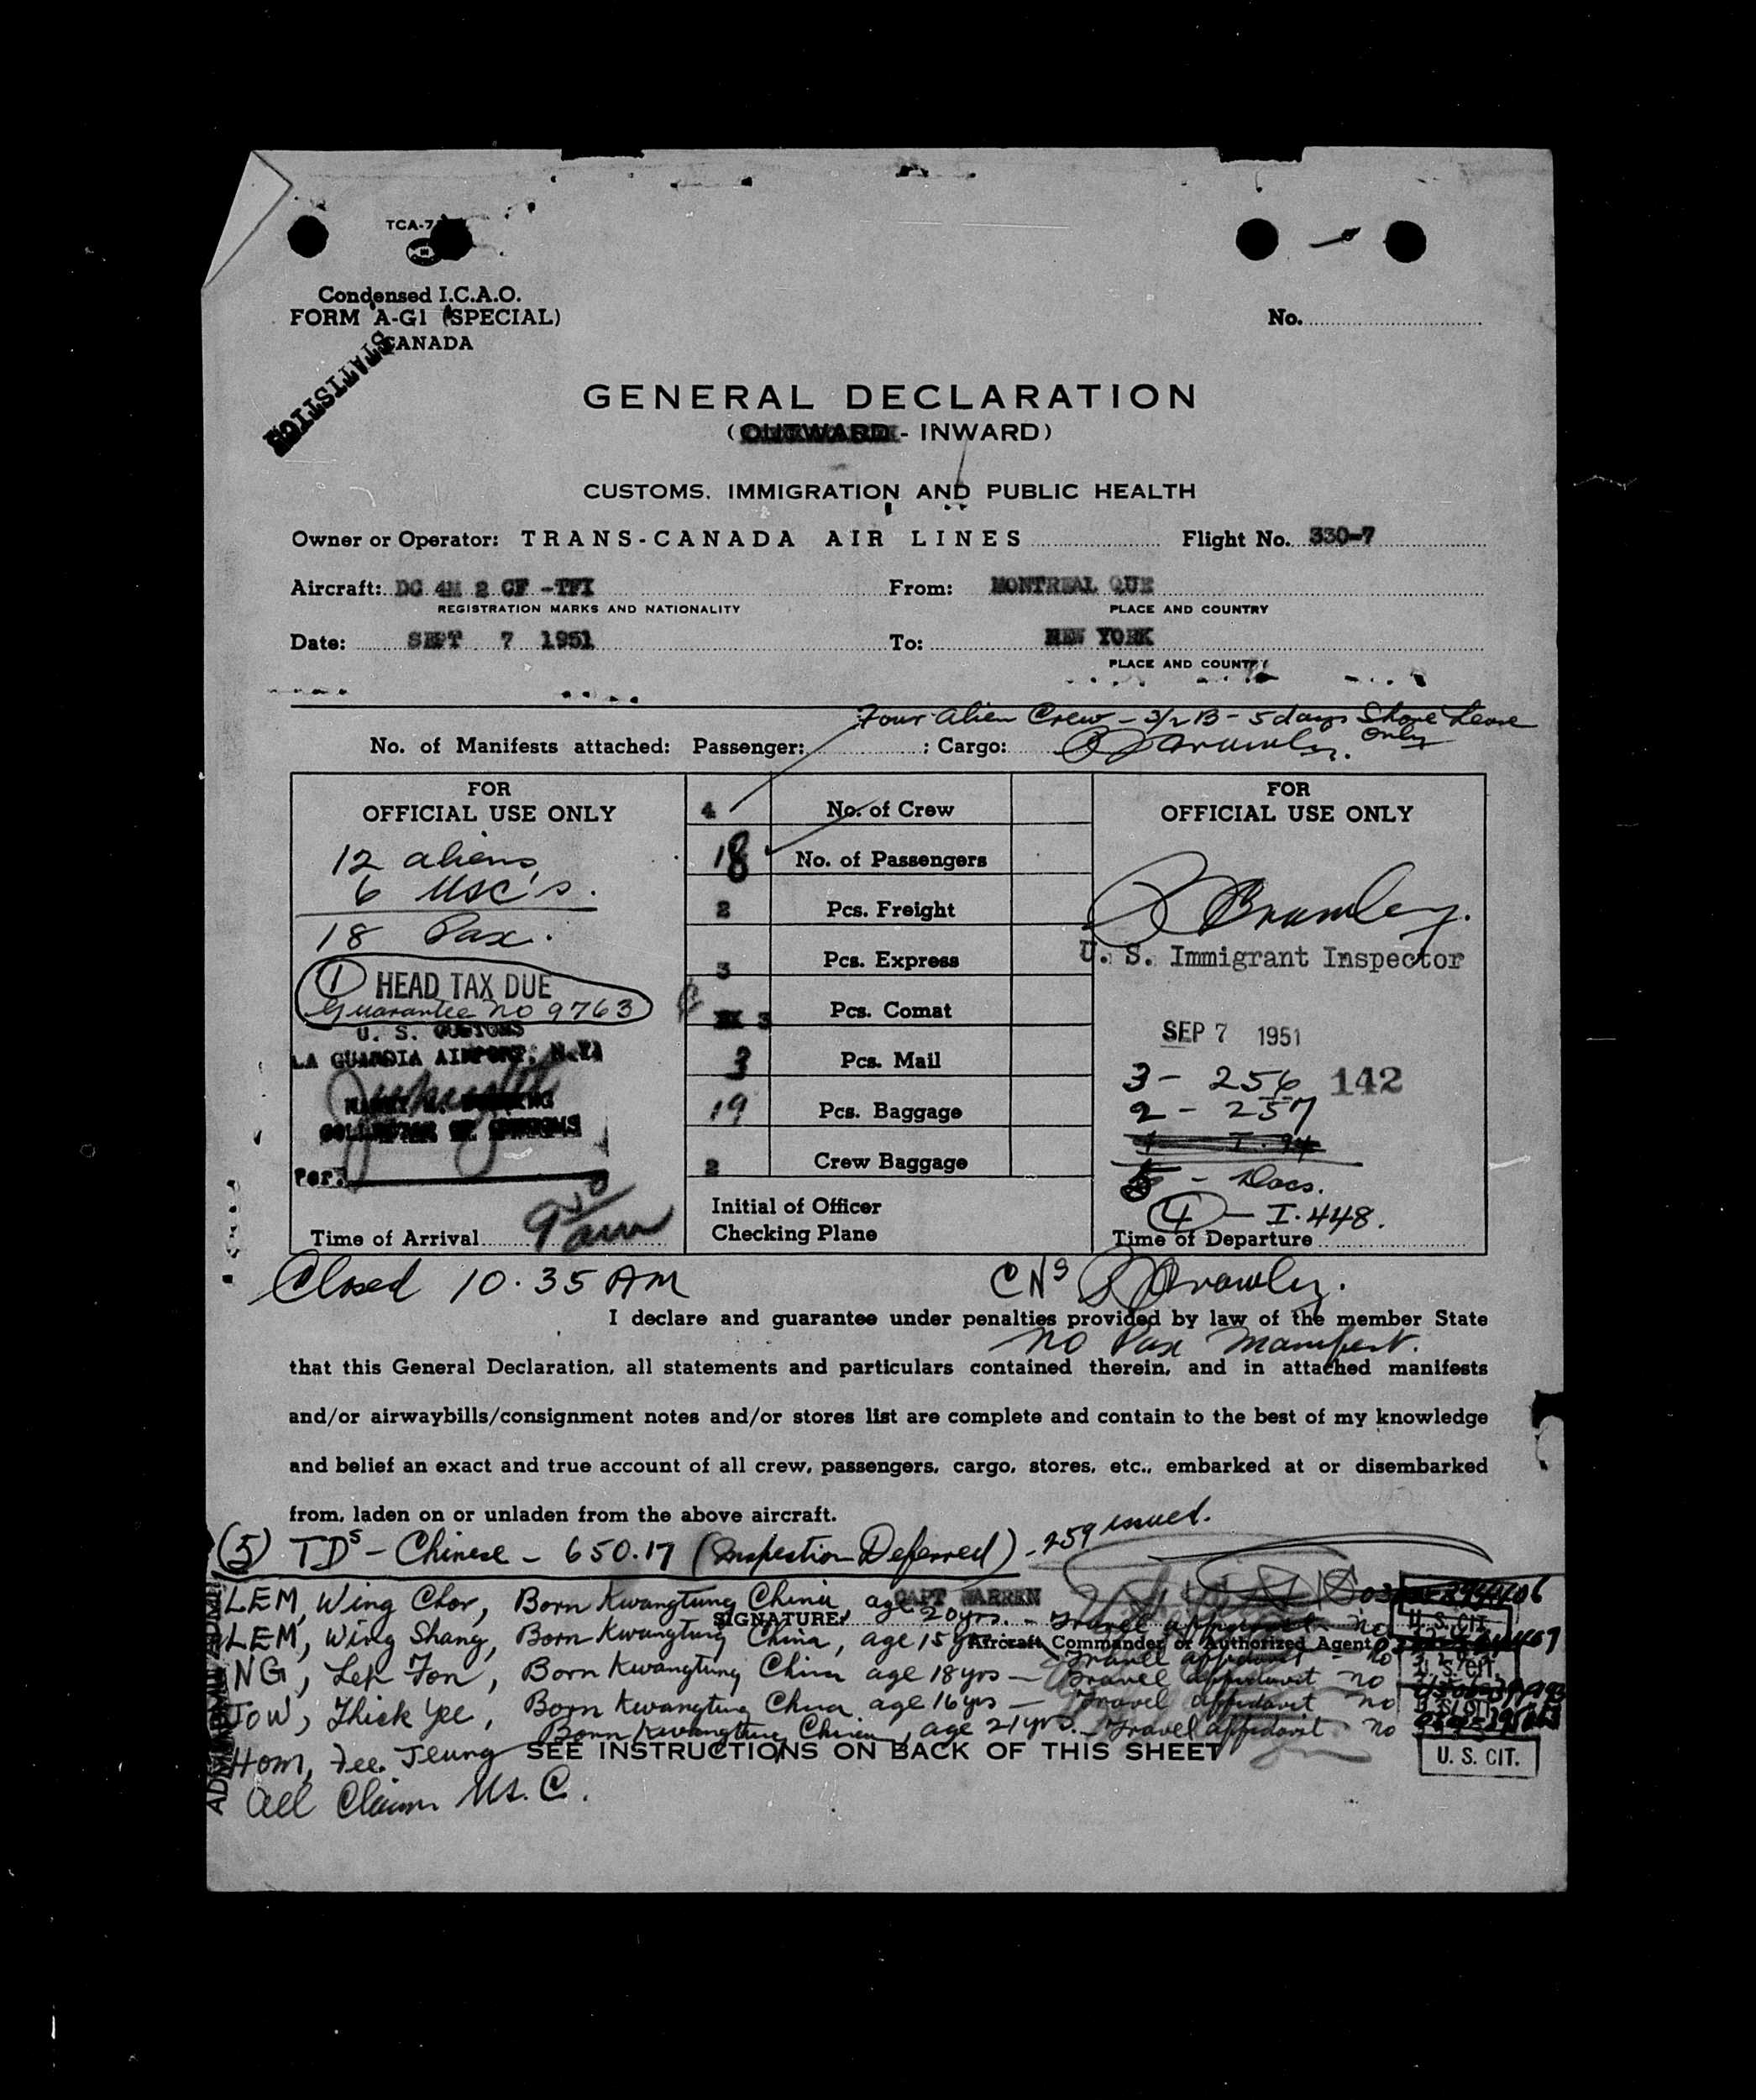 TCA-7
Condensed I.C.A.O.
FORM A-G1 (SPECIAL)
CANADA
No.
STATISTICS
GENERAL DECLARATION
(OUTWARD - INWARD)
CUSTOMS, IMMIGRATION AND PUBLIC HEALTH
Owner or Operator: TRANS-CANADA AIR LINES Flight No. 330-7
Aircraft: DC 4M 2 CF -TFI From: MONTREAL QUE
REGISTRATION MARKS AND NATIONALITY PLACE AND COUNTRY
Date: SEPT 7 1951 To: NEW YORK
PLACE AND COUNTRY
Four Alien Crew - 3/2 B - 5 days Shore Leave
only
No. of Manifests attached: Passenger: ; Cargo:
FOR
OFFICIAL USE ONLY
12 aliens
6 USC's.
18 Pax.
1 HEAD TAX DUE
Guarantee no 9763
U. S. CUSTOMS
LA GUARDIA AIRPORT, N.Y.
COLLECTOR OF CUSTOMS
Per:
Time of Arrival 9 am
4 No. of Crew
18 No. of Passengers
2 Pcs. Freight
3 Pcs. Express
3 Pcs. Comat
3 Pcs. Mail
19 Pcs. Baggage
2 Crew Baggage
Initial of Officer
Checking Plane
FOR
OFFICIAL USE ONLY
U. S. Immigrant Inspector
SEP 7 1951
3 - 256 142
2 - 257
5 - Docs.
4 - I.448.
Time of Departure
Closed 10.35 AM
I declare and guarantee under penalties provided by law of the member State
No Pax Manifest.
that this General Declaration, all statements and particulars contained therein, and in attached manifests
and/or airwaybills/consignment notes and/or stores list are complete and contain to the best of my knowledge
and belief an exact and true account of all crew, passengers, cargo, stores, etc., embarked at or disembarked
from, laden on or unladen from the above aircraft.
(5) TDs - Chinese - 650.17 (Inspection Deferred) - 259 issued.
CAPT WARREN
SIGNATURE:
Aircraft Commander or Authorized Agent
LEM, Wing Chor, Born Kwangtung China age 20 yrs. - Travel affidavit no
LEM, Wing Shang, Born Kwangtung China, age 15 yrs Travel affidavit - no
NG, Lek Fon, Born Kwangtung China age 18 yrs - Travel affidavit no
JOW, Thick Yee, Born Kwangtung China age 16 yrs - Travel affidavit no
Hom, Fee Jeung Born Kwangtung China, age 21 yrs. - Travel affidavit no
U. S. CIT.
SEE INSTRUCTIONS ON BACK OF THIS SHEET
All Claim U.S.C.